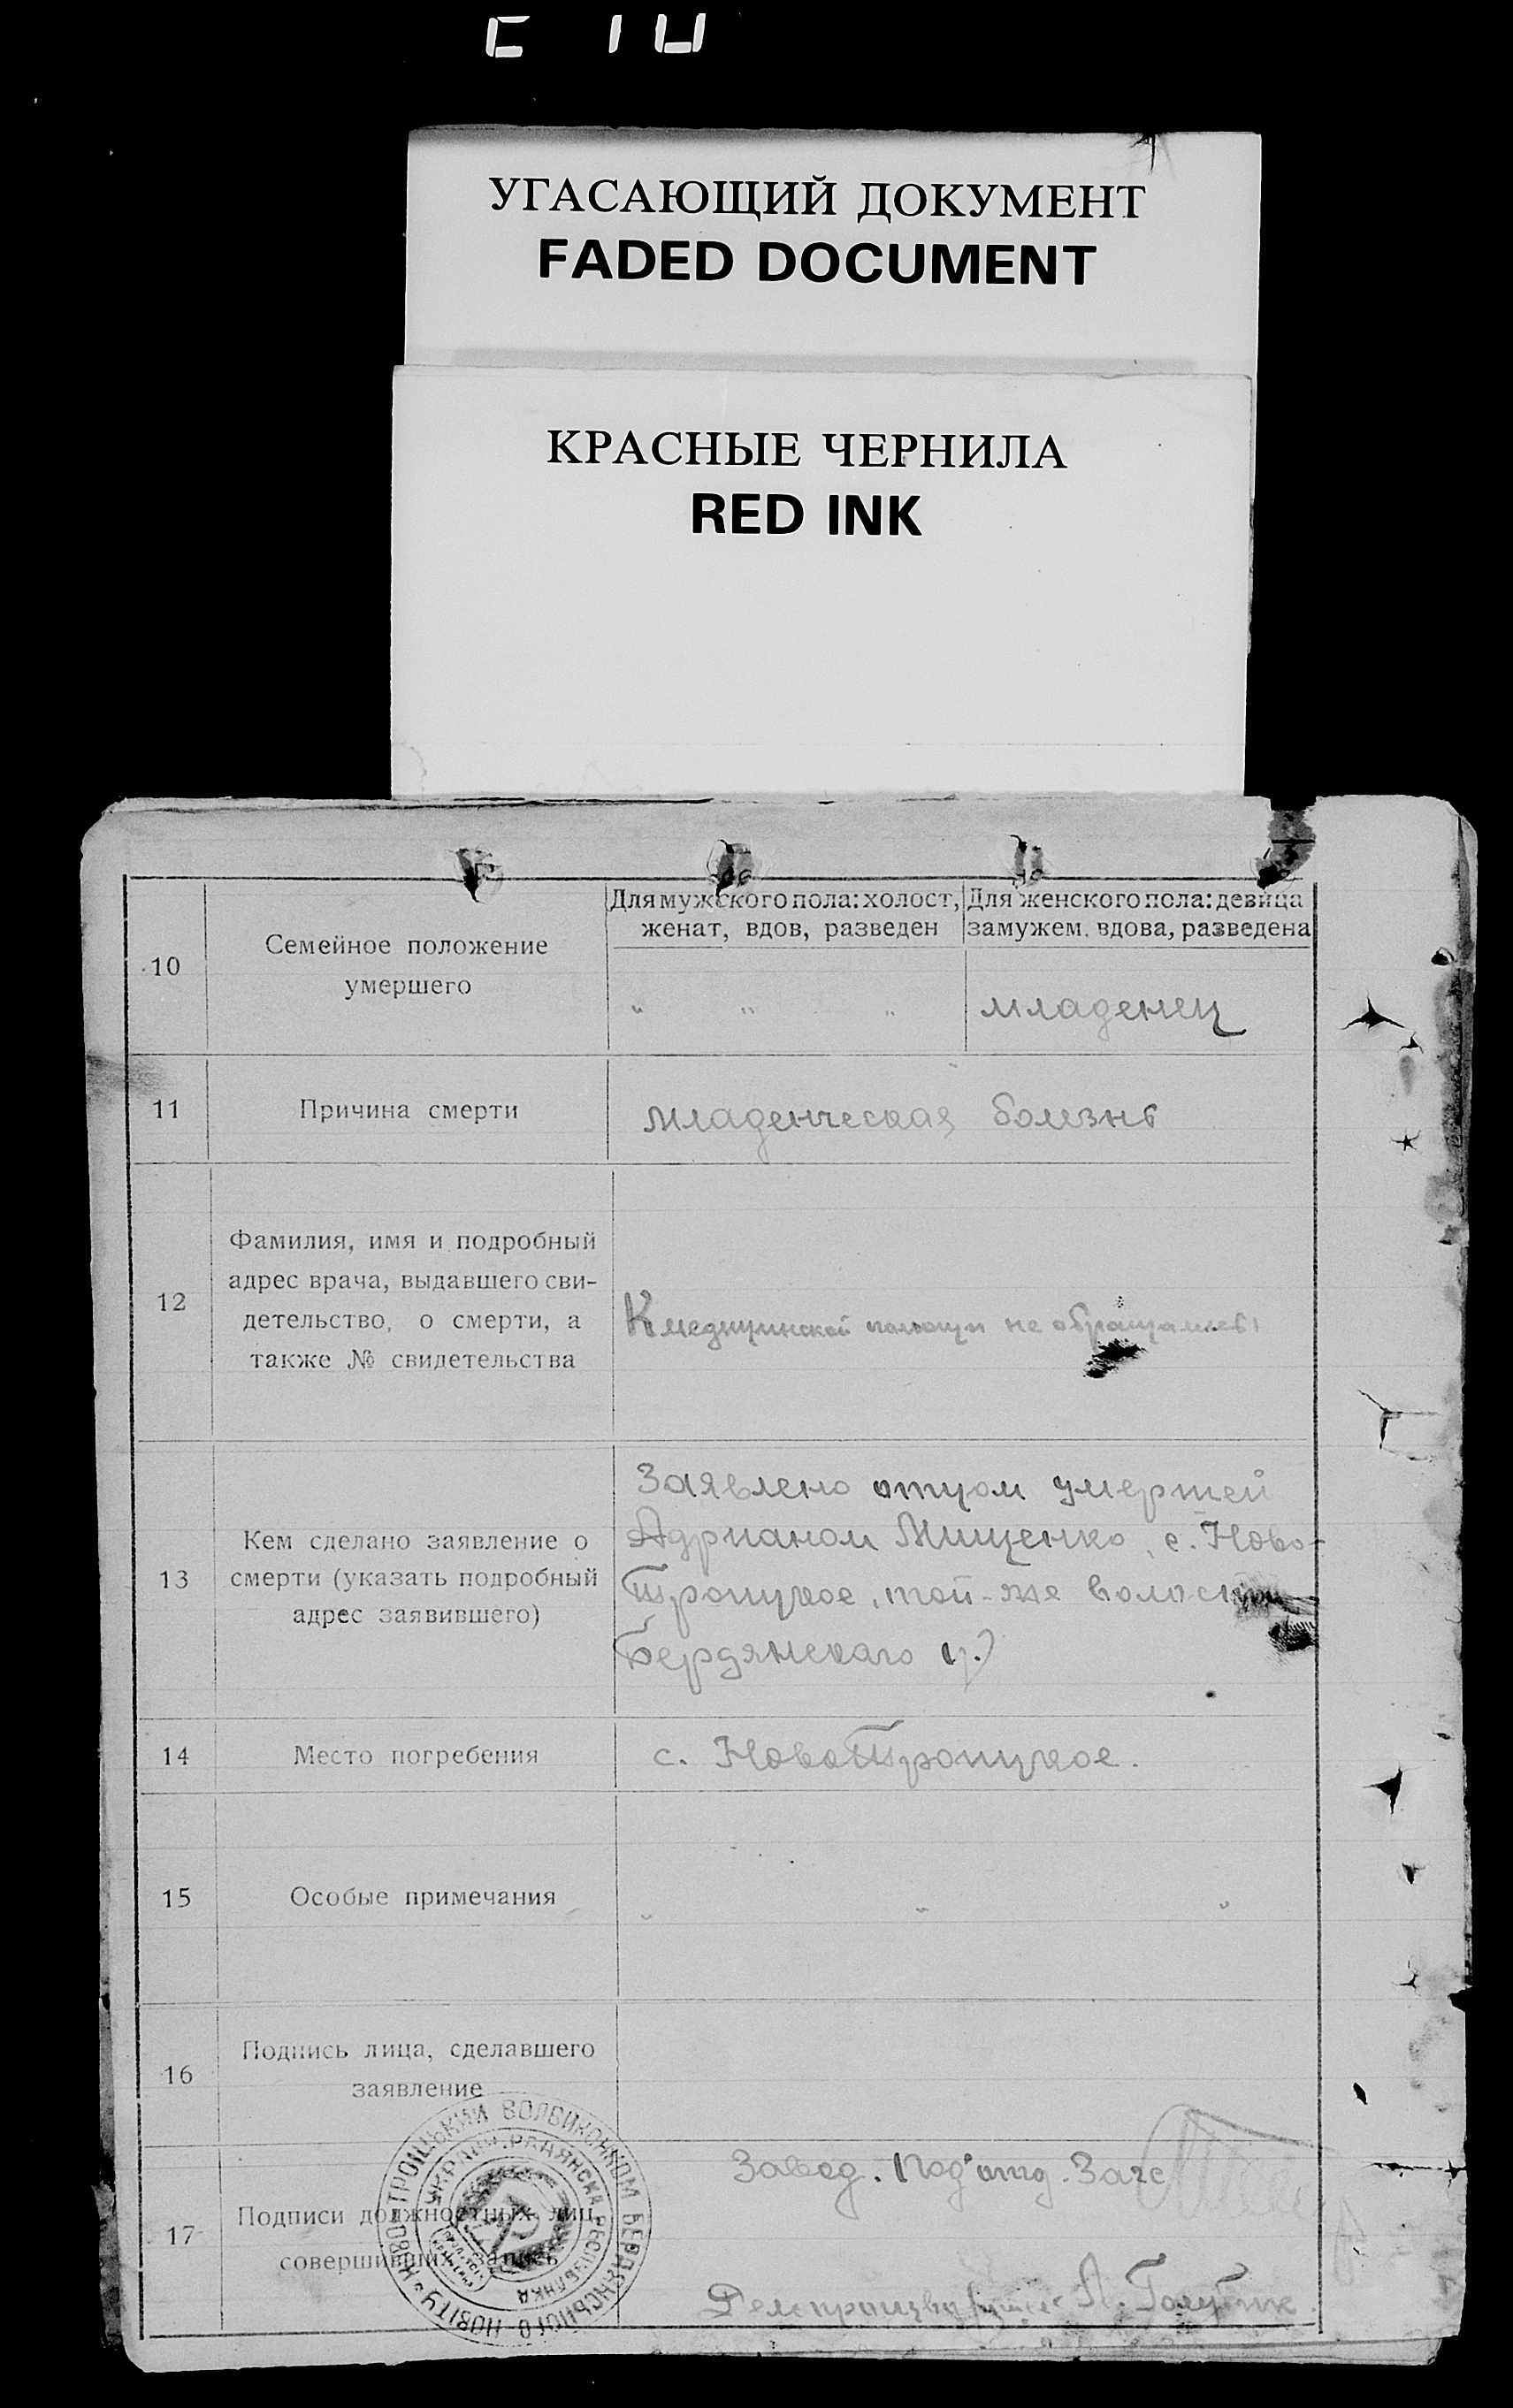 УГАСАЮЩИЙ ДОКУМЕНТ
FADED DOCUMENT
КРАСНЫЕ ЧЕРНИЛА
RED INK
10
Семейное положение
умершего
Для мужского пола: холост,
женат, вдов, разведен
Для женского пола: девица
замужем, вдова, разведена
" " "
младенец
11
Причина смерти
младенческая болезнь
12
Фамилия, имя и подробный
адрес врача, выдавшего сви-
детельство, о смерти, а
также № свидетельства
К медицинской помощи не обращались
13
Кем сделано заявление о
смерти (указать подробный
адрес заявившего)
Заявлено отцом умершей
Адрианом Мищенко, с. Ново-
Троицкое, той-же волости
Бердянскаго у.
14
Место погребения
с. НовоТроицкое.
15
Особые примечания
" " "
16
Подпись лица, сделавшего
заявление
17
Подписи должностных лиц,
совершивших запись
Завед. Под'отд. Загс
Делопроизводитель А.